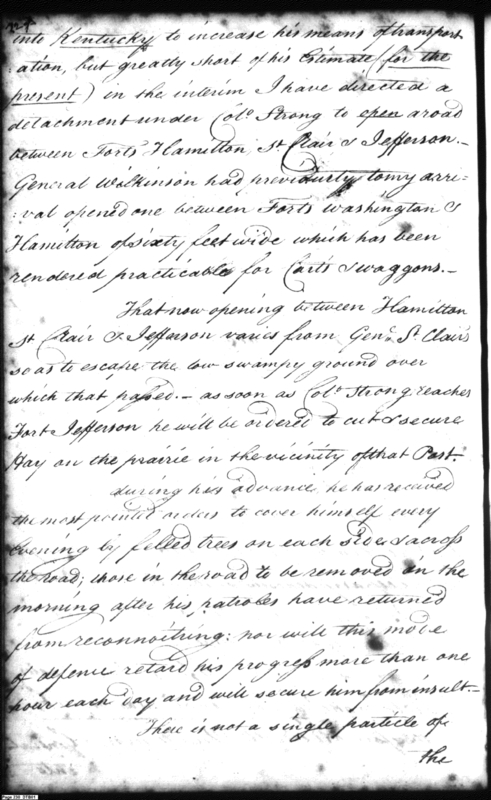 224
into Kentucky to increase his means of transport
ation, but greatly short of his Estimate (for the
present) in the interim I have directed a
detachment under Colo. Strong to open a road
between Forts Hamilton, St. Clair & Jefferson.—
General Wilkinson had previously to my arri=
:val opened one between Forts Washington &
Hamilton of sixty feet wide which has been
rendered practicable for Carts & waggons.—
That now opening between Hamilton
St Clair & Jefferson varies from Genl. St. Clair's
so as to escape the low swampy ground over
which that passed.— as soon as Colo. Strong reaches
Fort Jefferson he will be ordered to cut & secure
Hay on the prairie in the vicinity of that Post—
during his advance he has received
the most pointed orders to cover himself every
Evening by felled trees on each side & across
the road; those in the road to be removed in the
morning after his patroles have returned
from reconnoitring: nor will this mode
of defence retard his progress more than one
hour each day and will secure him from insult.—
There is not a single particle of
the